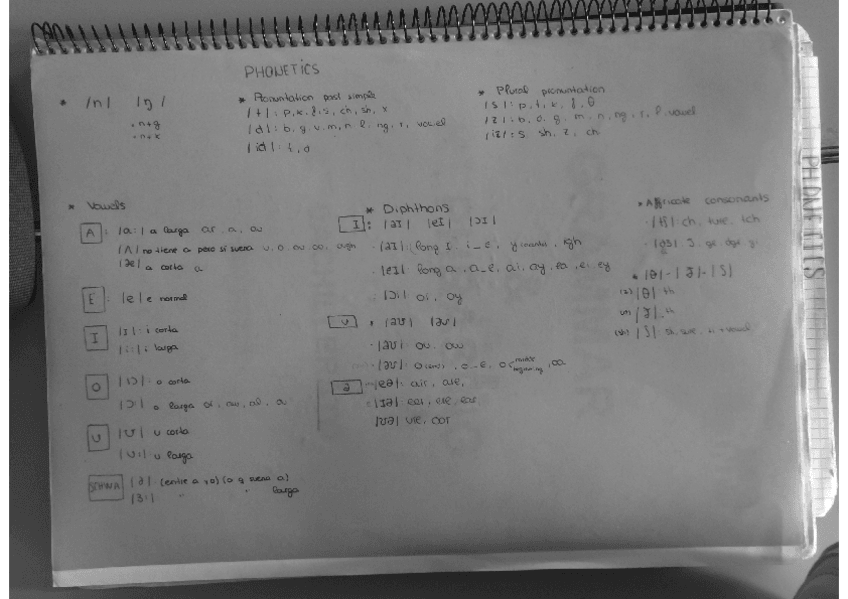 PHONETICS
* /n/ /ŋ/
. n+g
. n+k
* Pronuntation past simple
/t/: p, k, f, s, ch, sh, x
/d/: b, g, v, m, n, l, ng, r, vowel
/id/: t, d
* Plural pronuntation
/s/: p, t, k, f, θ
/z/: b, d, g, m, n, ng, r, l, vowel
/iz/: s, sh, z, ch
* Vowels
A : /a:/ a larga ar, a, au
/ʌ/ no tiene a pero sí suena u, o, ou, oo, ough
/æ/ a corta a
E : /e/ e normal
I /ɪ/: i corta
/i:/ i larga
O /ɒ/: o corta
/ɔ:/ o larga or, aw, al, a
U /ʊ/ u corta
/u:/ u larga
SCHWA /ə/ (entre a y o) (o q suena a)
/ɜ:/ " " larga
* Diphthons
I : /aɪ/ /eɪ/ /ɔɪ/
. /aɪ/: long I, i_e, y, igh
. /eɪ/ long a, a_e, ai, ay, ea, ei, ey
. /ɔɪ/ oi, oy
U * /aʊ/ /əʊ/
. /aʊ/ ou, ow
/əʊ/ o_e, oa
middle
beginning
ə /eə/: air, are,
. /ɪə/: eer, ere, ear
/ʊə/ ure, oor
* Affricate consonants
. /tʃ/: ch, ture, tch
. /dʒ/ J, ge, dge, gi
* /θ/ - /ð/ - /ʃ/
/θ/ th
/ð/ th
/ʃ/ sh
PHONETICS